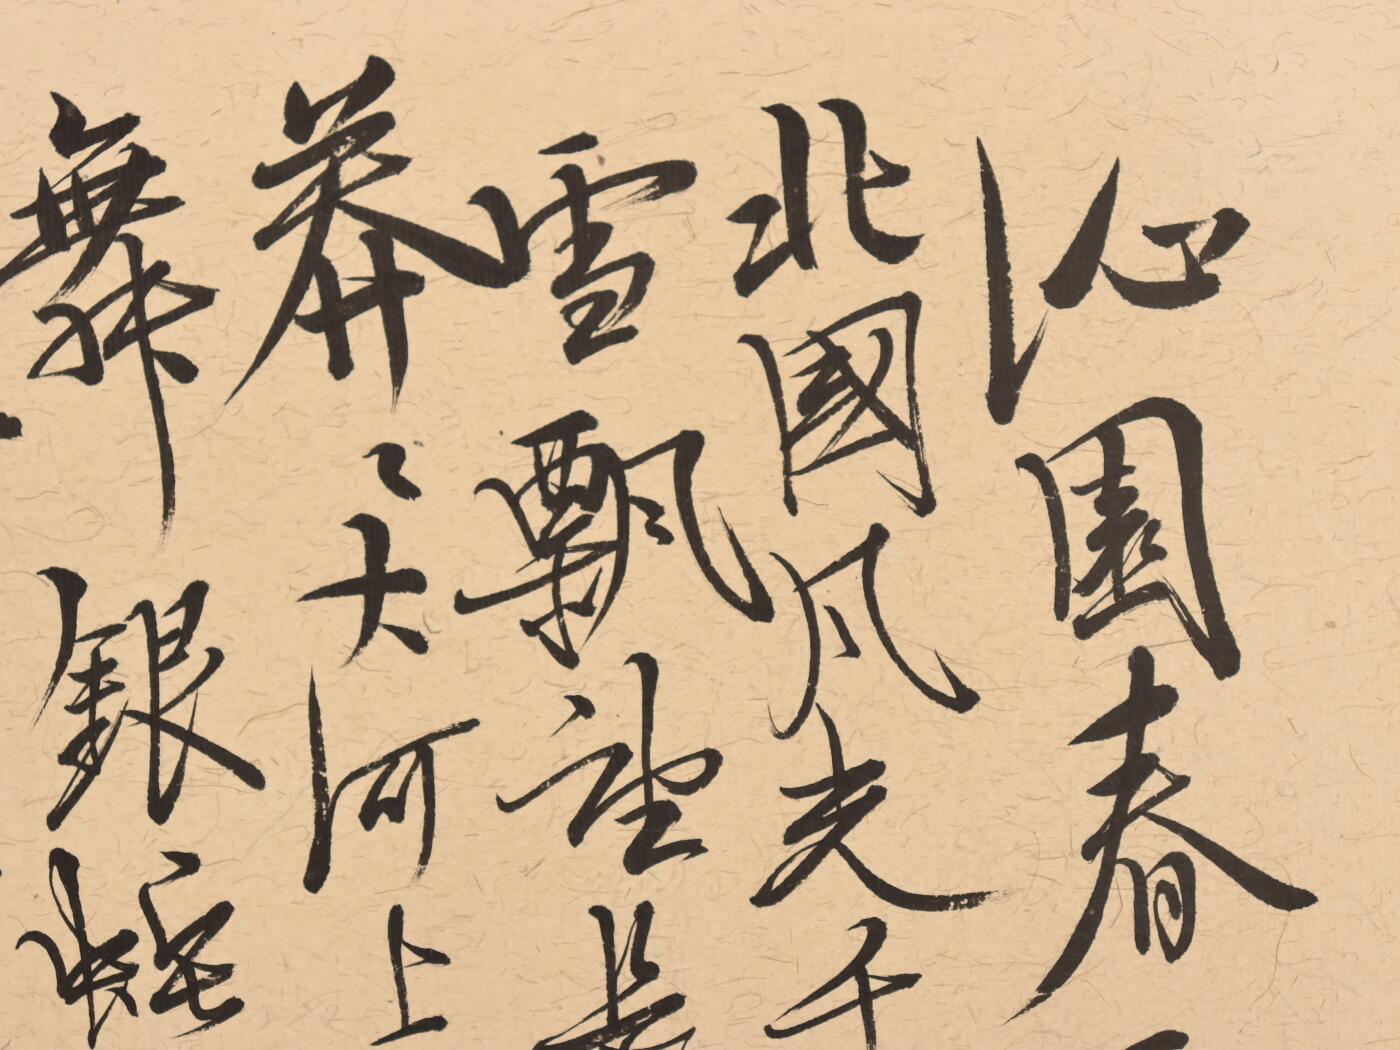 沁園春
北國風光千
雪飄望長
莽々大河上
舞銀蛇